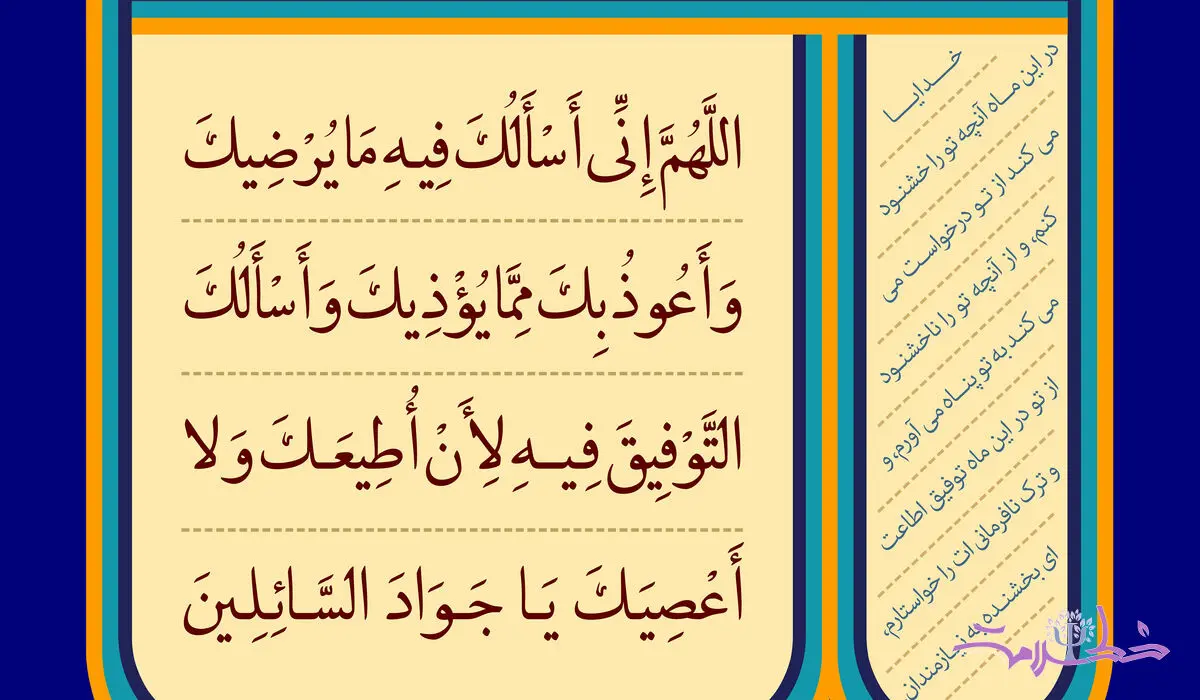 اللَّهُمَّ إِنِّی أَسْأَلُكَ فِیهِ مَا یُرْضِیكَ
وَ أَعُوذُ بِكَ مِمَّا یُؤْذِیكَ وَ أَسْأَلُكَ
التَّوْفِیقَ فِیهِ لِأَنْ أُطِیعَكَ وَ لا
أَعْصِیَكَ یَا جَوَادَ السَّائِلِینَ
خدایا
در این ماه آنچه تو را خشنود
می کند از تو درخواست می
کنم، و از آنچه تو را ناخشنود
می کند به تو پناه می آورم، و
از تو در این ماه توفیق اطاعت
و ترک نافرمانی ات را خواستارم،
ای بخشنده به نیازمندان
خط سلامت